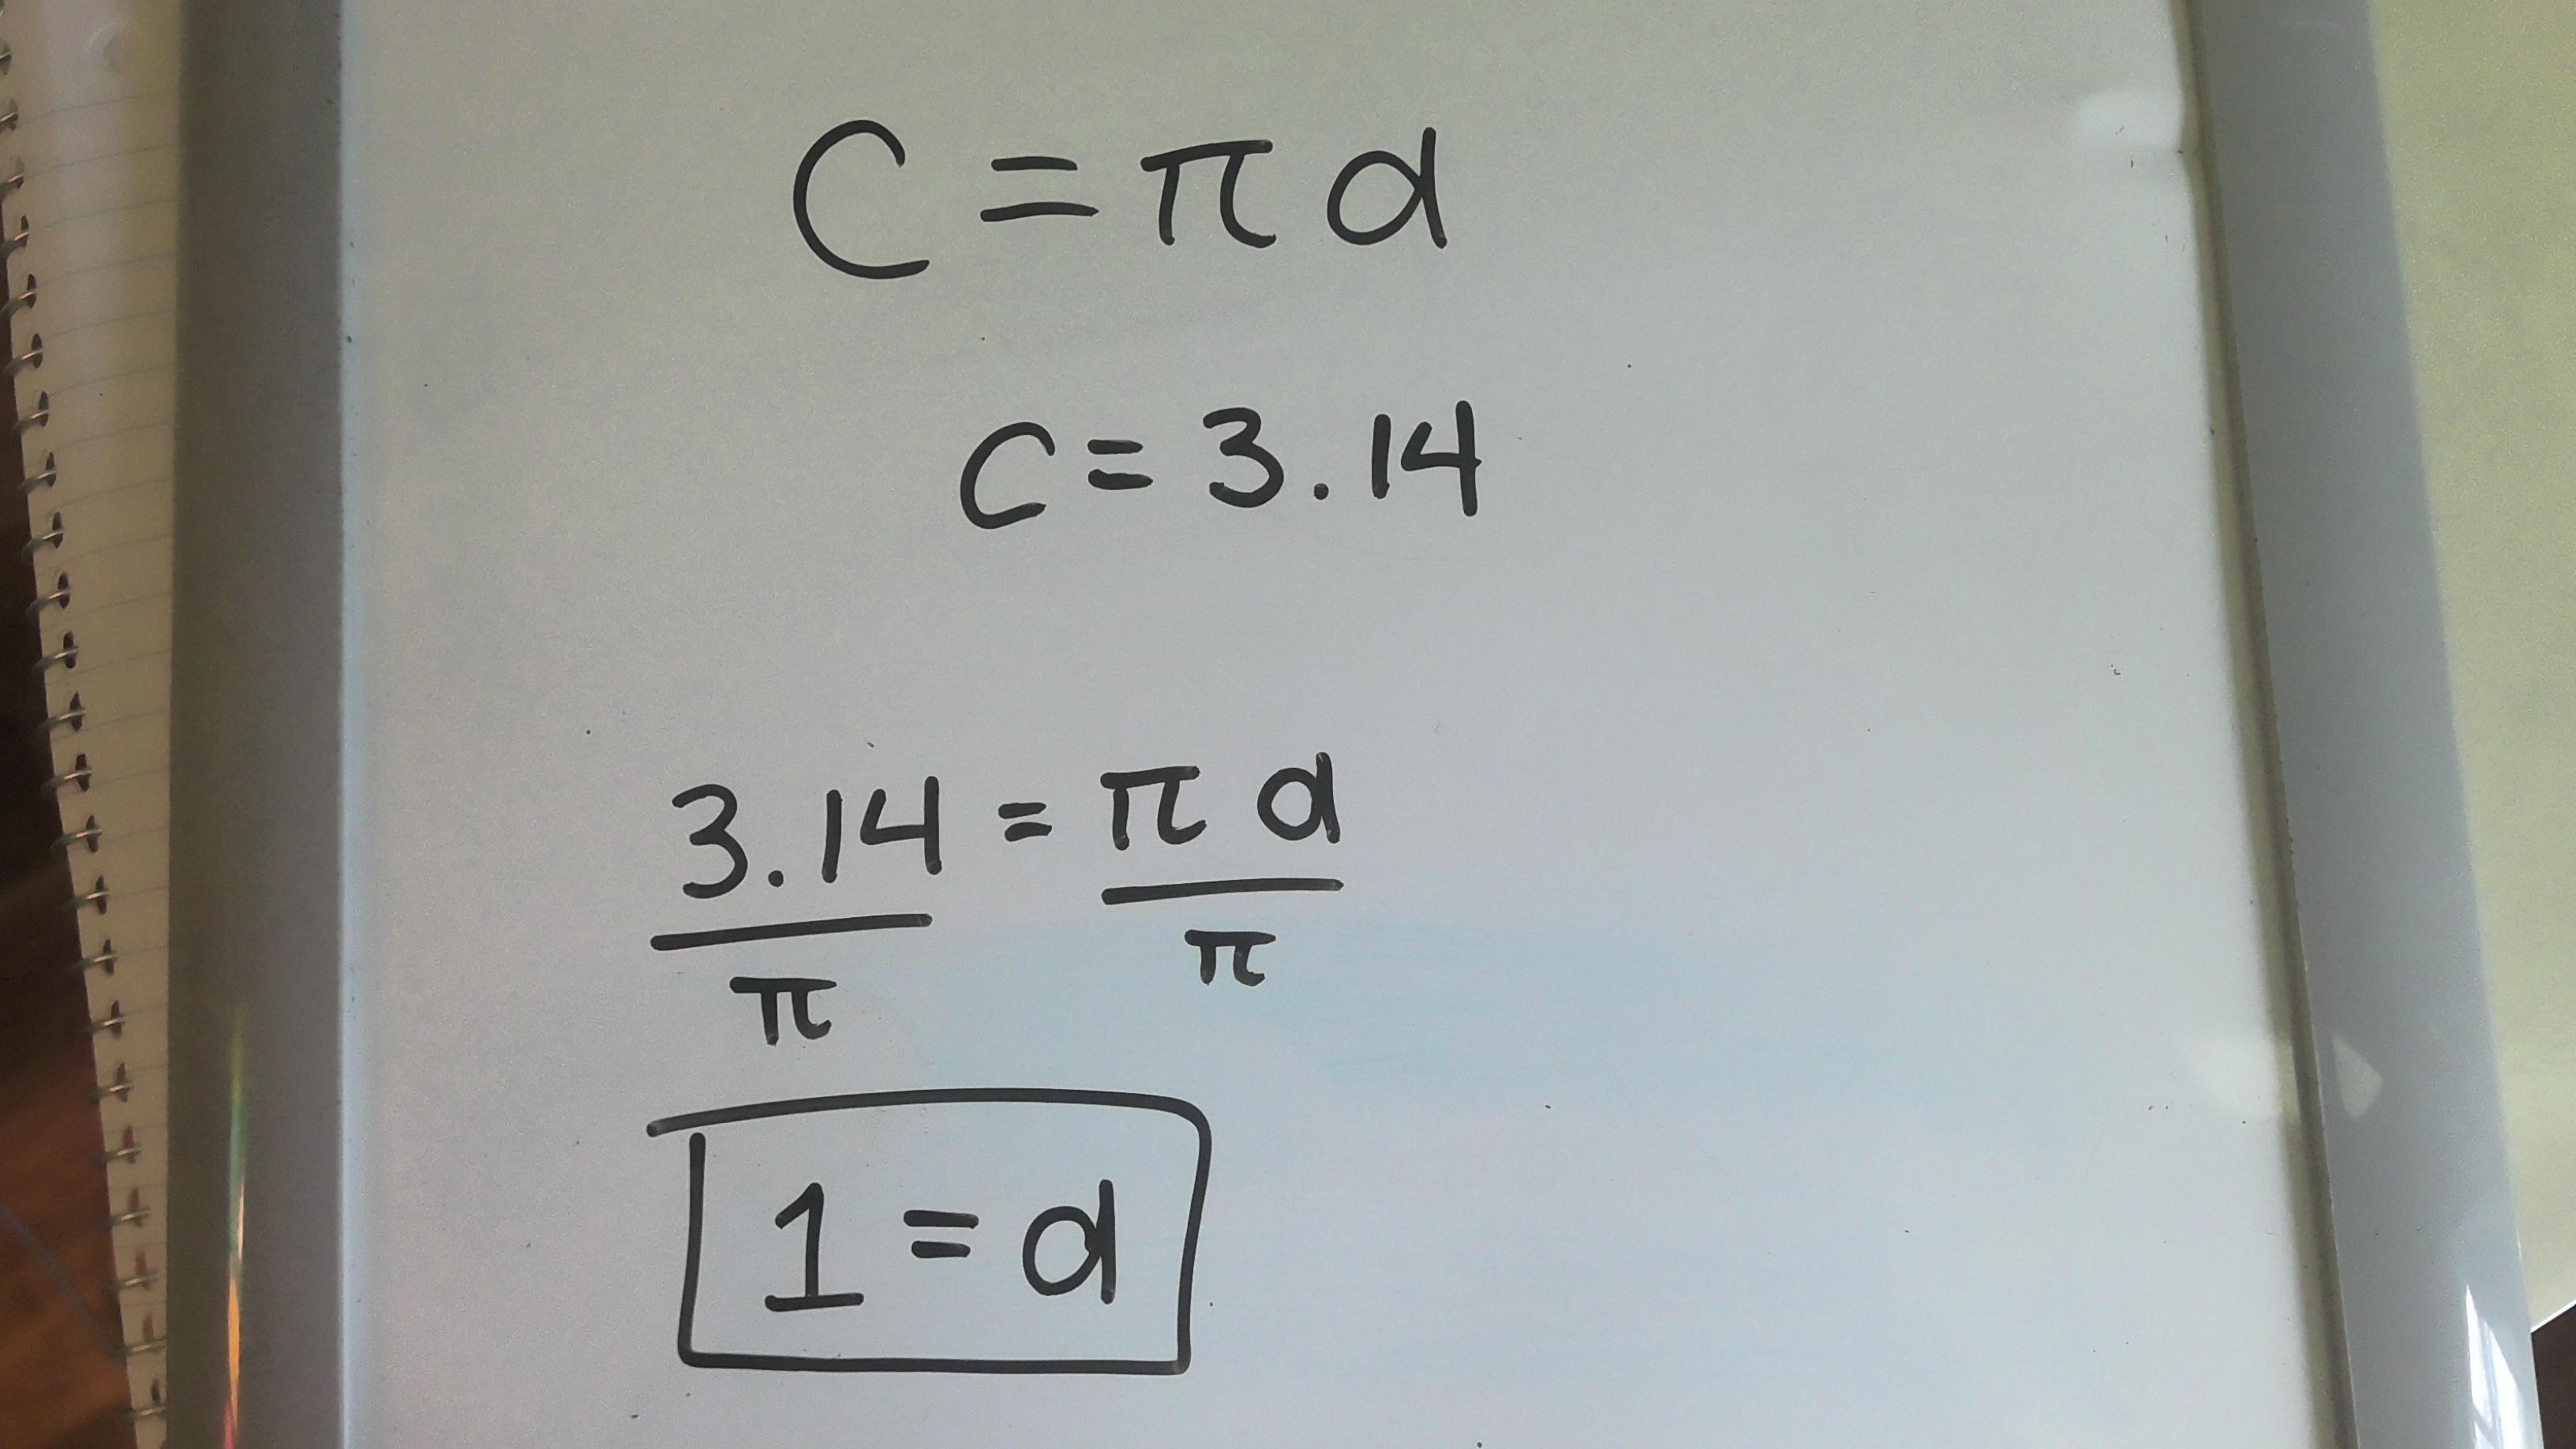 C = π d
C = 3.14
3.14 = π d
π π
1 = d